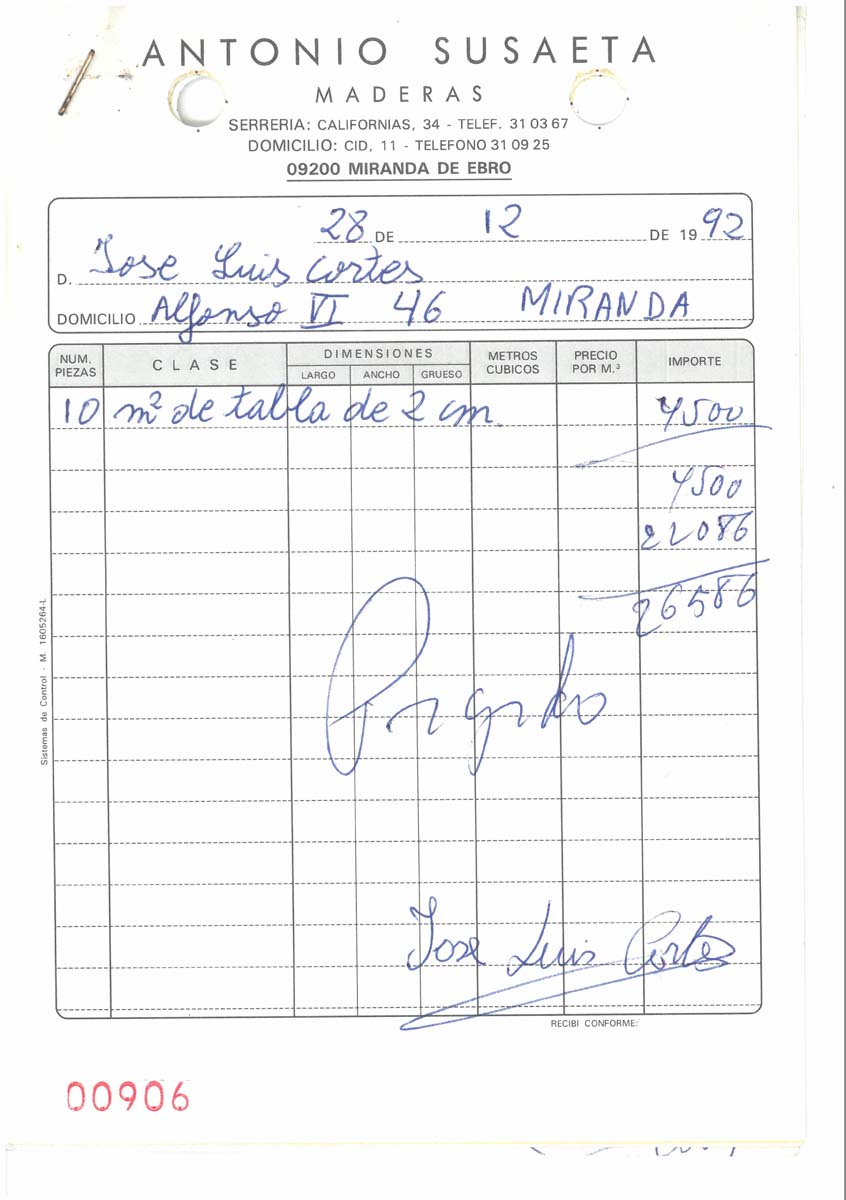 ANTONIO SUSAETA
MADERAS
SERRERIA: CALIFORNIAS, 34 - TELEF. 31 03 67
DOMICILIO: CID, 11 - TELEFONO 31 09 25
09200 MIRANDA DE EBRO
28 DE 12 DE 19 92
D. Jose Luis Cortes
DOMICILIO Alfonso VI 46 MIRANDA
NUM. PIEZAS CLASE DIMENSIONES LARGO ANCHO GRUESO METROS CUBICOS PRECIO POR M.³ IMPORTE
10 m² de tabla de 2 cm. 4500
4500
22086
26586
Pagado
Jose Luis Cortes
RECIBI CONFORME:
Sistemas de Control - M. 1605264-L
00906